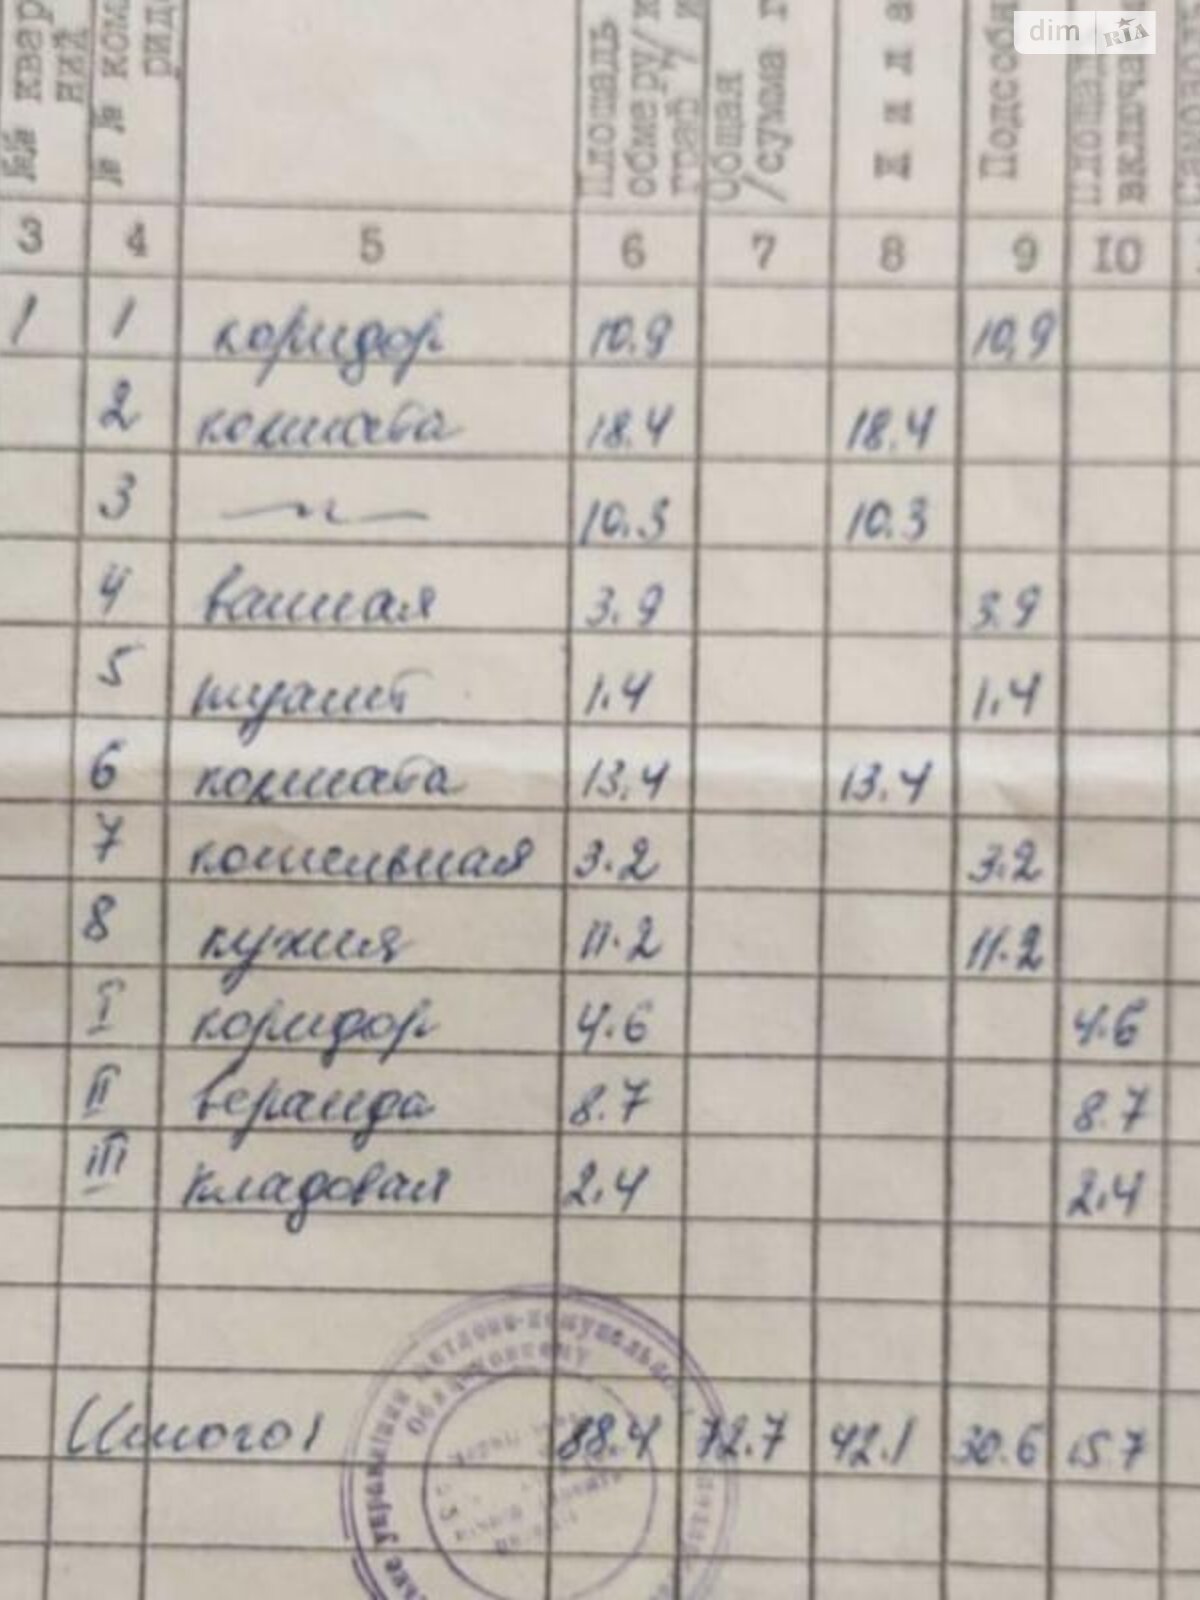 dim RIA
№№ квар
ний
№ № ком
Площадь
обмеру/
граф
Общая
/сумма г
Ж и л а
Подсобн
Площад
включа
3 4 5 6 7 8 9 10
1 1 коридор 10.9 10,9
2 комната 18.4 18.4
3 —〃— 10.3 10.3
4 ванная 3.9 3.9
5 туалет 1.4 1.4
6 комната 13.4 13.4
7 котельная 3.2 3.2
8 кухня 11.2 11.2
I коридор 4.6 4.6
II веранда 8.7 8.7
III кладовая 2.4 2.4
Итого: 88.4 72.7 42.1 30.6 15.7